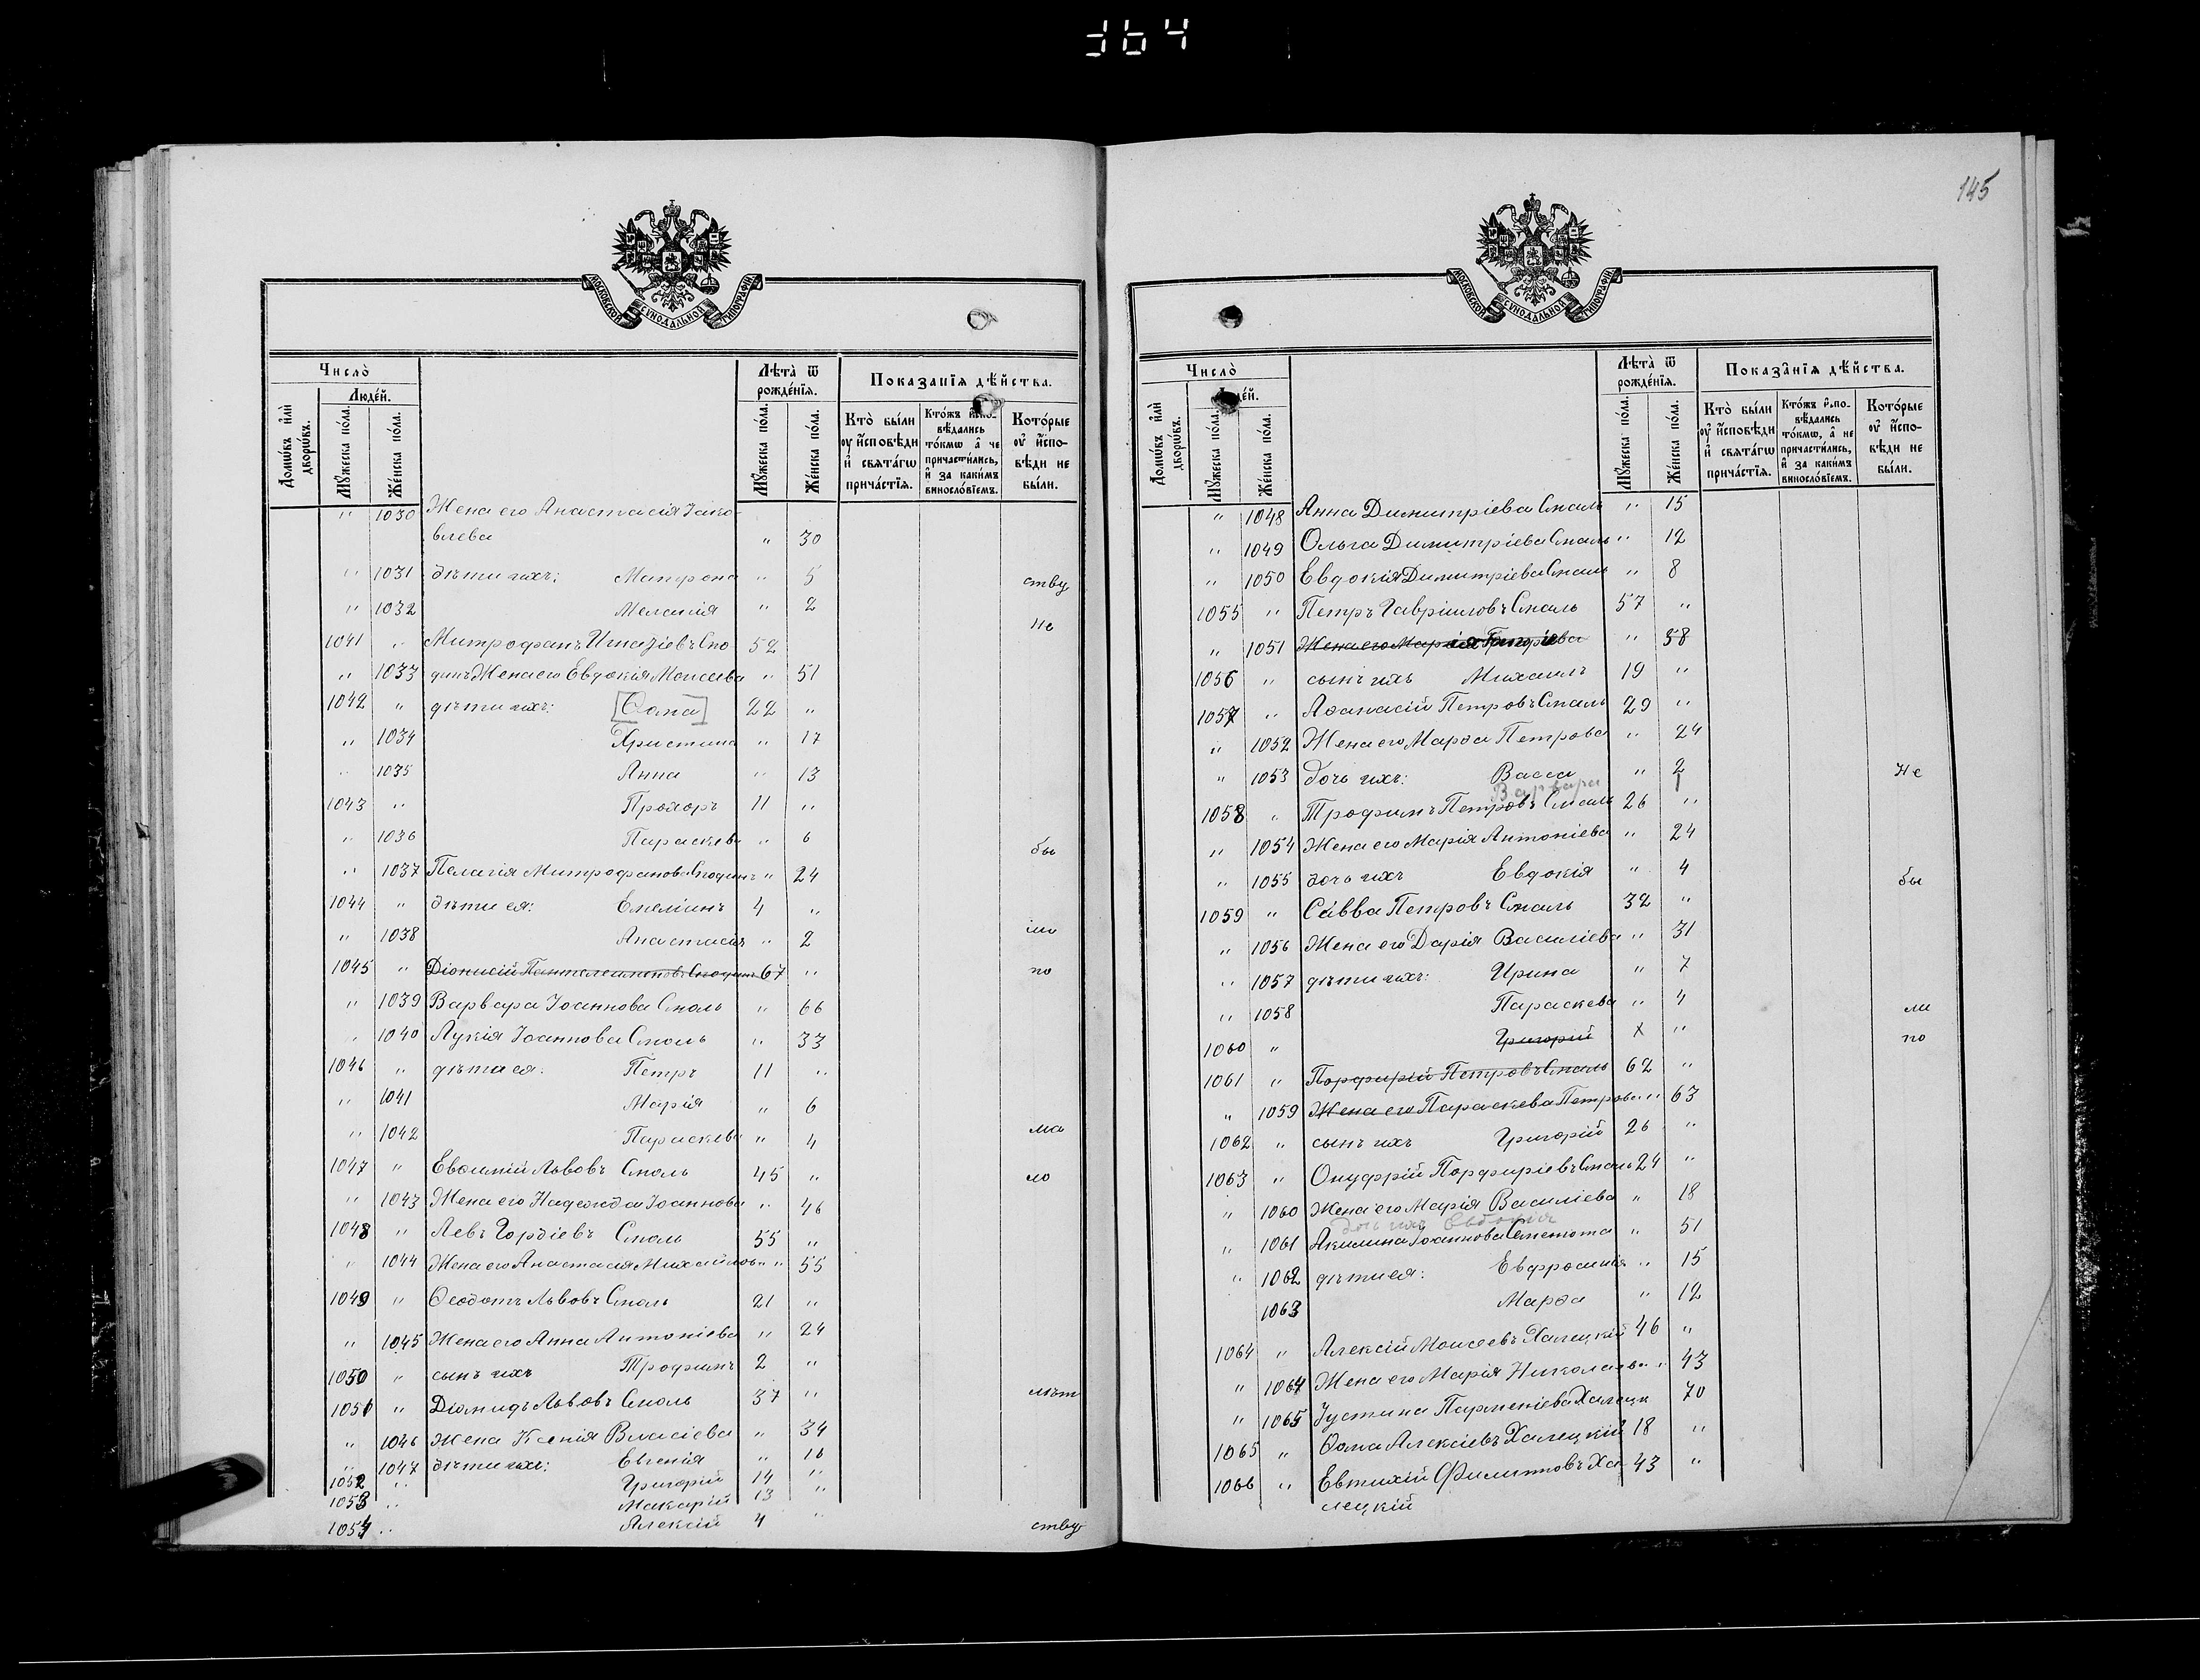 364
МОСКОВСКОЙ СУНОДАЛЬНОЙ ТИПОГРАФІИ.
Число̀
Людéй.
Домѡ́въ и҆лѝ дворѡ́въ.
Мꙋ́жеска по́ла.
Же́нска по́ла.
Лѣ́та ѿ рожде́нїѧ.
Мꙋ́жеска по́ла.
Же́нска по́ла.
Показа́нїѧ дѣ́йства.
Кто̀ бы́ли ᲂу҆ и҆́сповѣди и҆ свѧта́гѡ прича́стїѧ.
Кто́жъ и҆спо-
вѣ́дались
то́кмѡ а҆ не
причасти́лись,
и҆ за каки́мъ
виносло́вїемъ.
Кото́рые
ᲂу҆ и҆́спо-
вѣди не
бы́ли.
" 1030 Жена его Анастасія Іако-
влева " 30
" 1031 дѣти ихъ: Матрона " 5 ству
" 1032 Меланія " 2 не
1041 " Митрофанъ Игнатіевъ Спо 52
" 1033 динъ Жена его Евдокія Моисеева " 51
1042 " дѣти ихъ: [Ѳома] 22 "
" 1034 Христина " 17
" 1035 Анна " 13
1043 " Прохоръ 11 "
" 1036 Параскева " 6 бы
" 1037 Пелагія Митрофанова Сподинъ " 24
1044 " дѣти ея: Емеліанъ 4 "
" 1038 Анастасія " 2
1045 " Діонисій Пантелеимоновъ Сподинъ 67 " по
" 1039 Варвара Іоаннова Смоль " 66
" 1040 Лукія Іоаннова Смоль " 33
1046 " дѣти ея: Петръ 11 "
" 1041 Марія " 6
" 1042 Параскева " 4 ма
1047 " Евѳимій Львовъ Смоль 45 " ло
" 1043 Жена его Надежда Іоаннова " 46
1048 " Левъ Гордіевъ Смоль 55 "
" 1044 Жена его Анастасія Михайлова " 55
1049 " Ѳеодотъ Львовъ Смоль 21 "
" 1045 Жена его Анна Антоніева " 24
1050 " сынъ ихъ Трофимъ 2 "
1051 " Діомидъ Львовъ Смоль 37 " лѣт
" 1046 Жена Ксенія Власіева " 34
" 1047 дѣти ихъ: Евгенія " 16
1052 " Григорій 14 "
1053 " Макарій 13 "
1054 " Алексій 4 " ству
145
Число̀
Людéй.
Домѡ́въ и҆лѝ дворѡ́въ.
Мꙋ́жеска по́ла.
Же́нска по́ла.
Лѣ́та ѿ рожде́нїѧ.
Мꙋ́жеска по́ла.
Же́нска по́ла.
Показа́нїѧ дѣ́йства.
Кто̀ бы́ли ᲂу҆ и҆́сповѣди и҆ свѧта́гѡ прича́стїѧ.
Кто́жъ и҆спо-
вѣ́дались
то́кмѡ, а҆ не
причасти́лись,
и҆ за каки́мъ
виносло́вїемъ.
Кото́рые
ᲂу҆ и҆́спо-
вѣди не
бы́ли.
" 1048 Анна Димитріева Смаль " 15
" 1049 Ольга Димитріева Смаль " 12
" 1050 Евдокія Димитріева Смаль " 8
1055 " Петръ Гавріиловъ Смаль 57 "
" 1051 Жена его Марія Григоріева " 58
1056 " сынъ ихъ Михаилъ 19 "
1057 " Аѳанасій Петровъ Смаль 29 "
" 1052 Жена его Марѳа Петрова " 24
" 1053 дочь ихъ: Васса " 2 Не
Варвара
1058 " Трофимъ Петровъ Смаль 26 "
" 1054 Жена его Марія Антоніева " 24
" 1055 дочь ихъ Евдокія " 4 бы
1059 " Савва Петровъ Смаль 32 "
" 1056 Жена его Дарія Василіева " 31
" 1057 дѣти ихъ: Ирина " 7
" 1058 Параскева " 4 ли
1060 " Григорій X " по
1061 " Порфирій Петровъ Смаль 62 "
" 1059 Жена его Параскева Петрова " 63
1062 " сынъ ихъ Григорій 26 "
1063 " Онуфрій Порфиріевъ Смаль 24 "
" 1060 Жена его Марія Василіева " 18
дочь ихъ Евдокія
" 1061 Акилина Іоаннова " 51
" 1062 дѣти ея: Евфросинія " 15
1063 Марѳа " 12
1064 " Алексій Моисеевъ Халецкій 46 "
" 1064 Жена его Марія Николаева " 43
" 1065 Іустина Парменіева Халецк 70
1065 " Ѳома Алексіевъ Халецкій 18 "
1066 " Евтихій Филипповъ Ха 43 "
лецкій